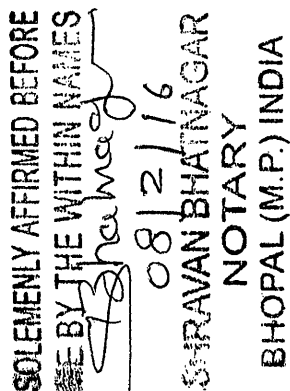 SOLEMENLY AFFIRMED BEFORE
E BY THE WITHIN NAMES
08/2/16
SHRAVAN BHATNAGAR
NOTARY
BHOPAL (M.P.) INDIA